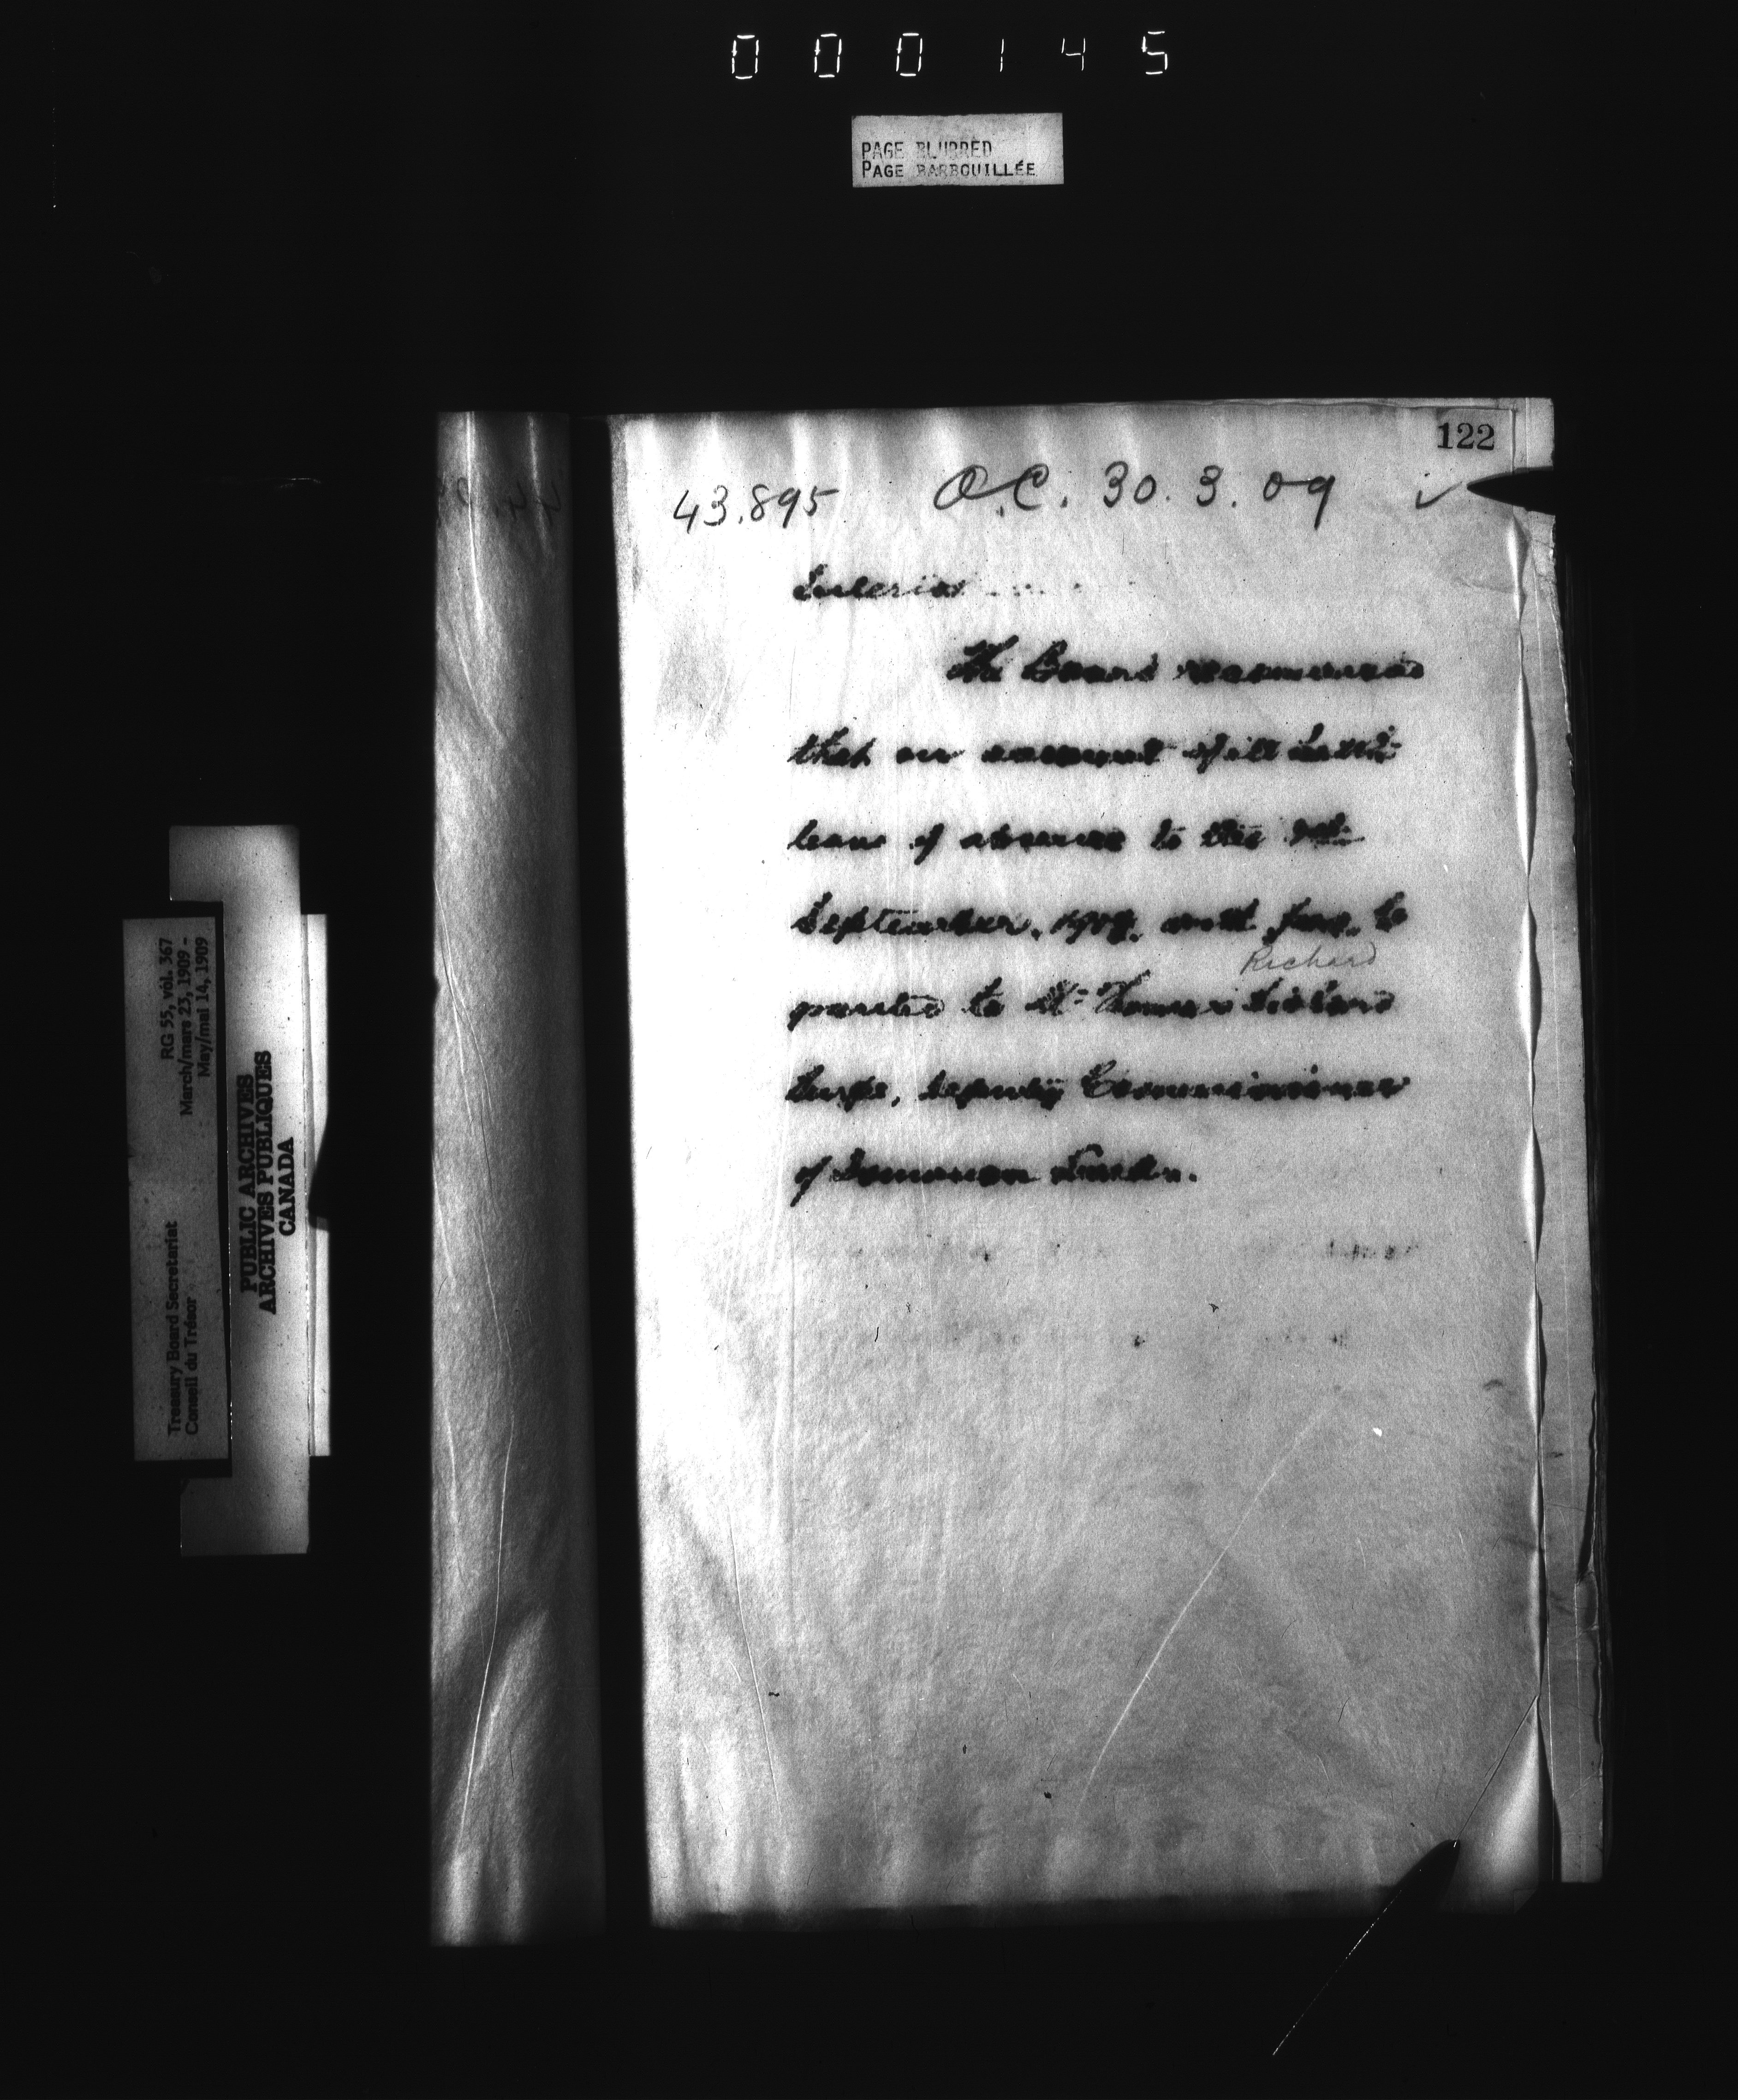 000145
PAGE BLURRED
PAGE BARBOUILLÉE
122
43.895 O.C. 30.3.09 ✓
Interior
The Board recommend
that on account of ill health
leave of absence to the
September, 1909, with pay, be
Richard
granted to Mr Thomas
deputy Commissioner
of Dominion Lands.
Treasury Board Secretariat RG 55, vol. 367
Conseil du Trésor March/mars 23, 1909 -
May/mai 14, 1909
PUBLIC ARCHIVES
ARCHIVES PUBLIQUES
CANADA